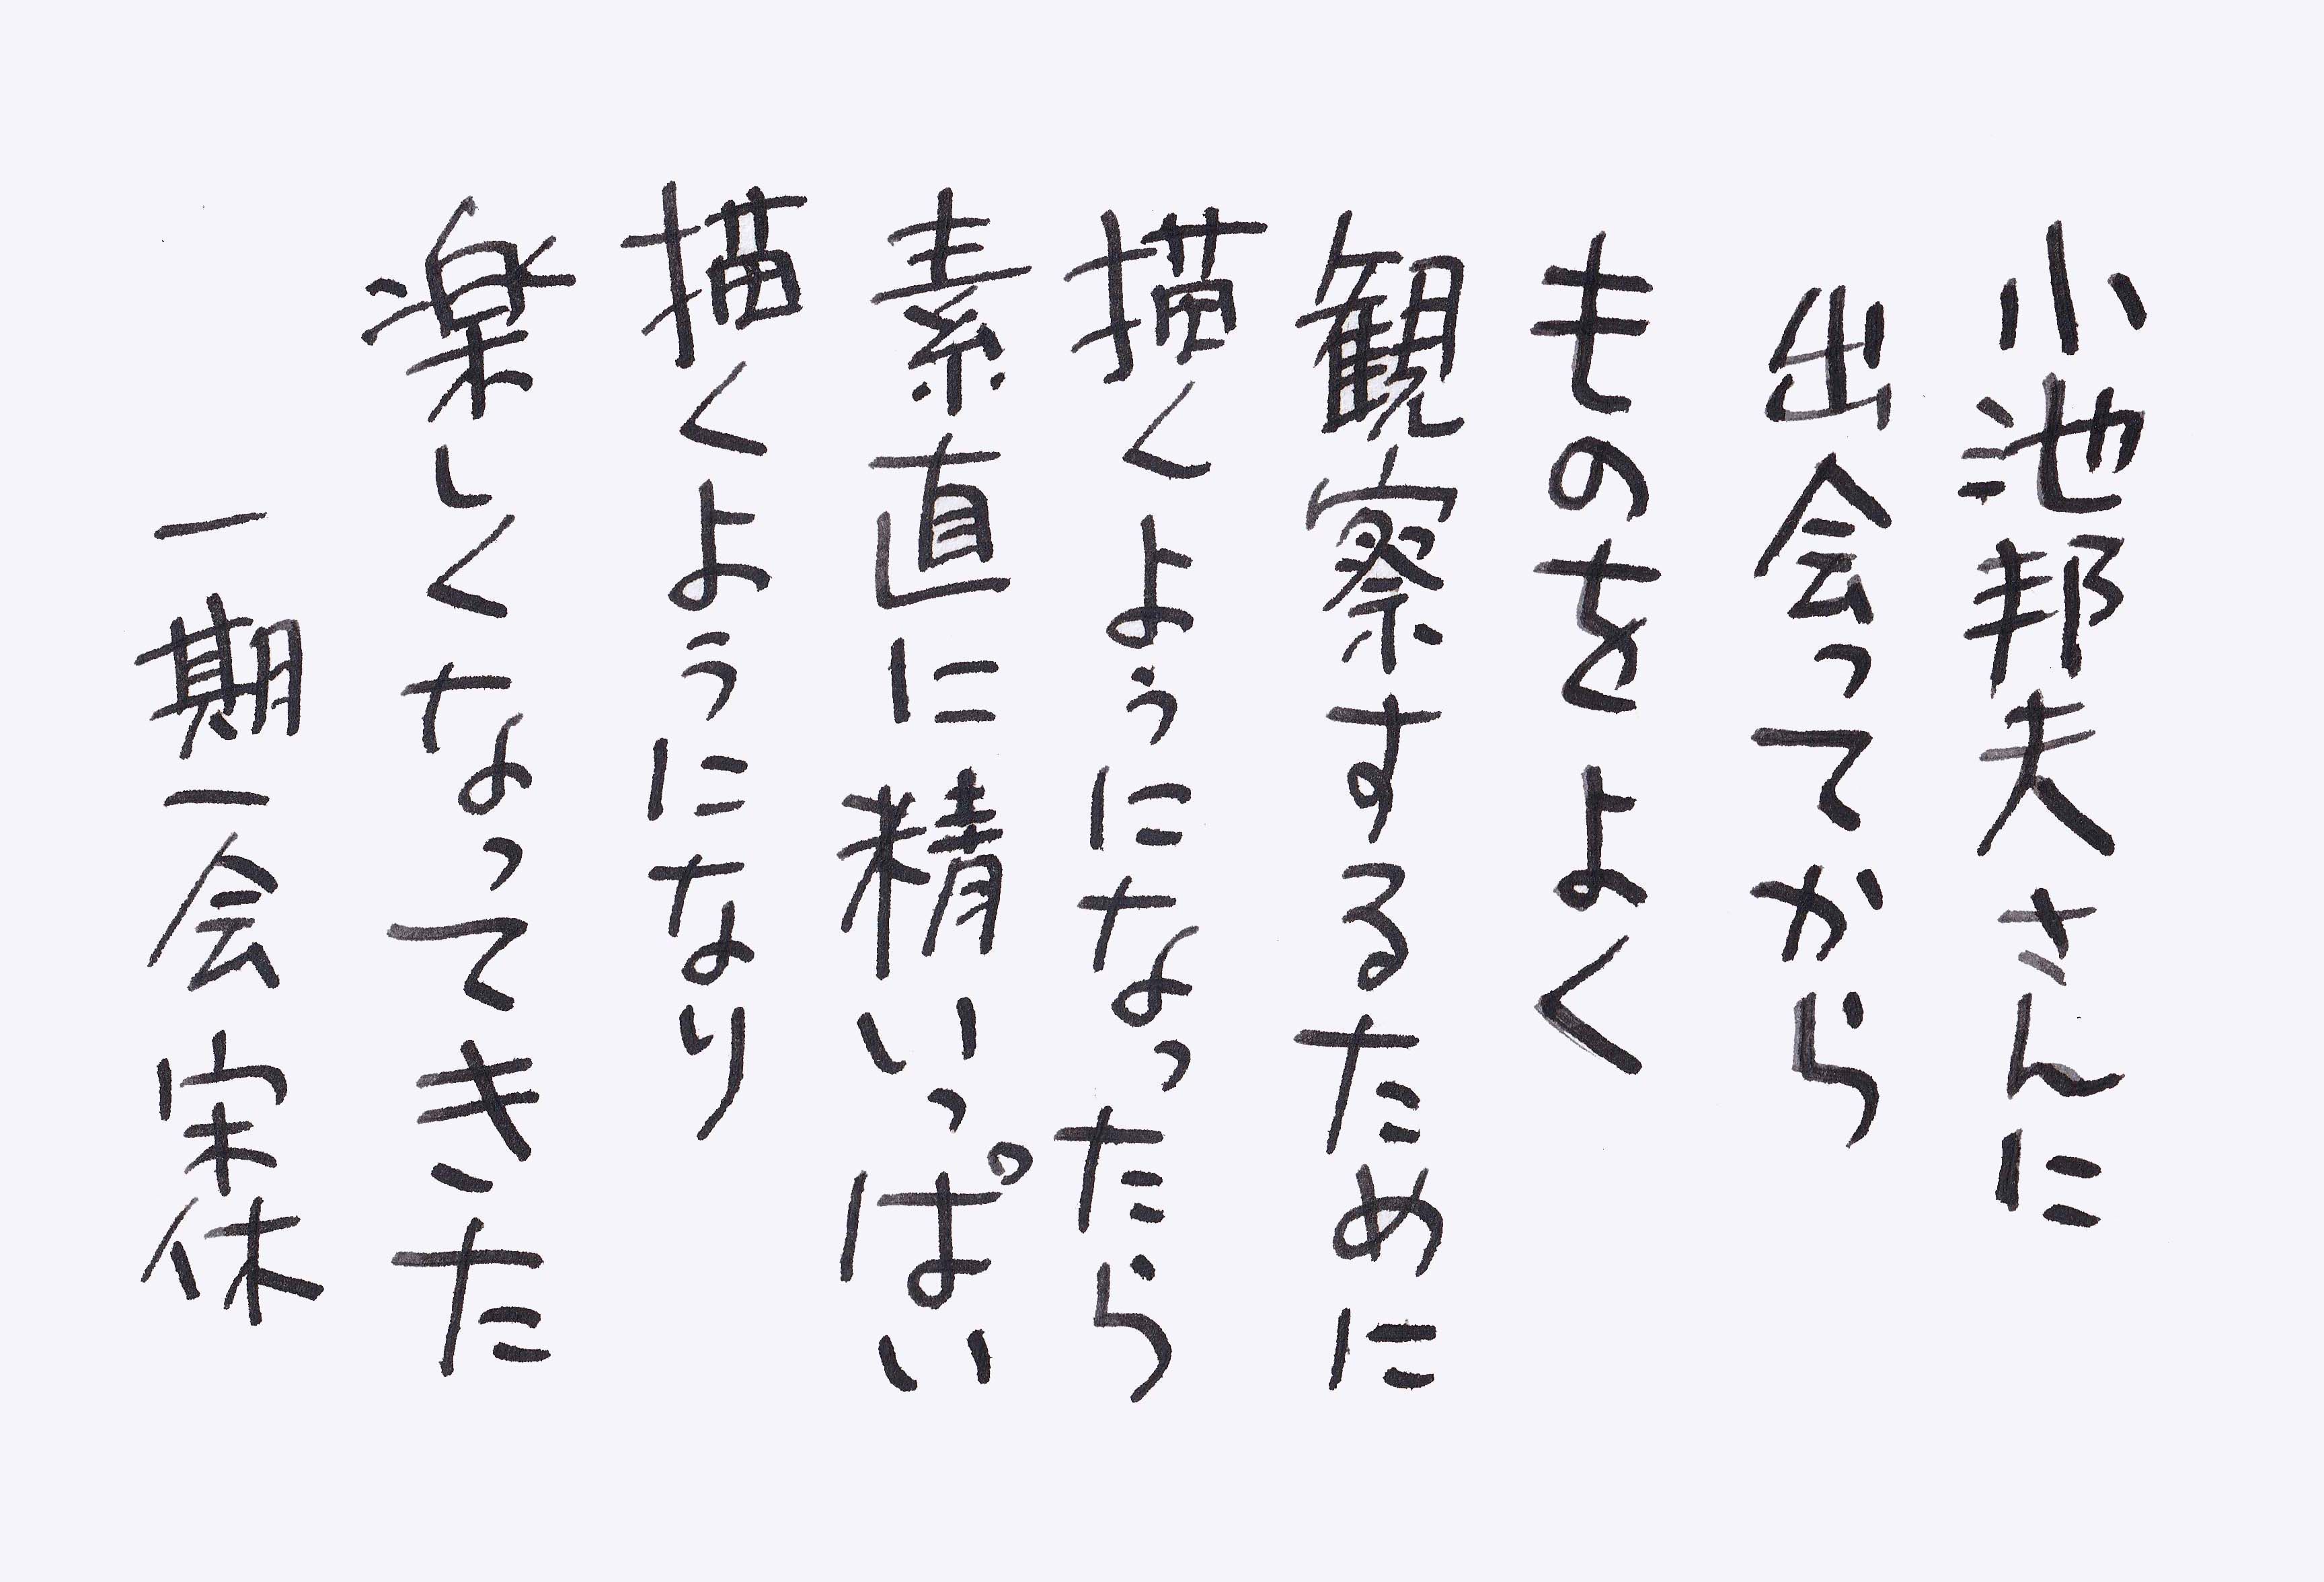 小池邦夫さんに
出会ってから
ものをよく
観察するために
描くようになったら
素直に精いっぱい
描くようになり
楽しくなってきた
一期一会 宋休